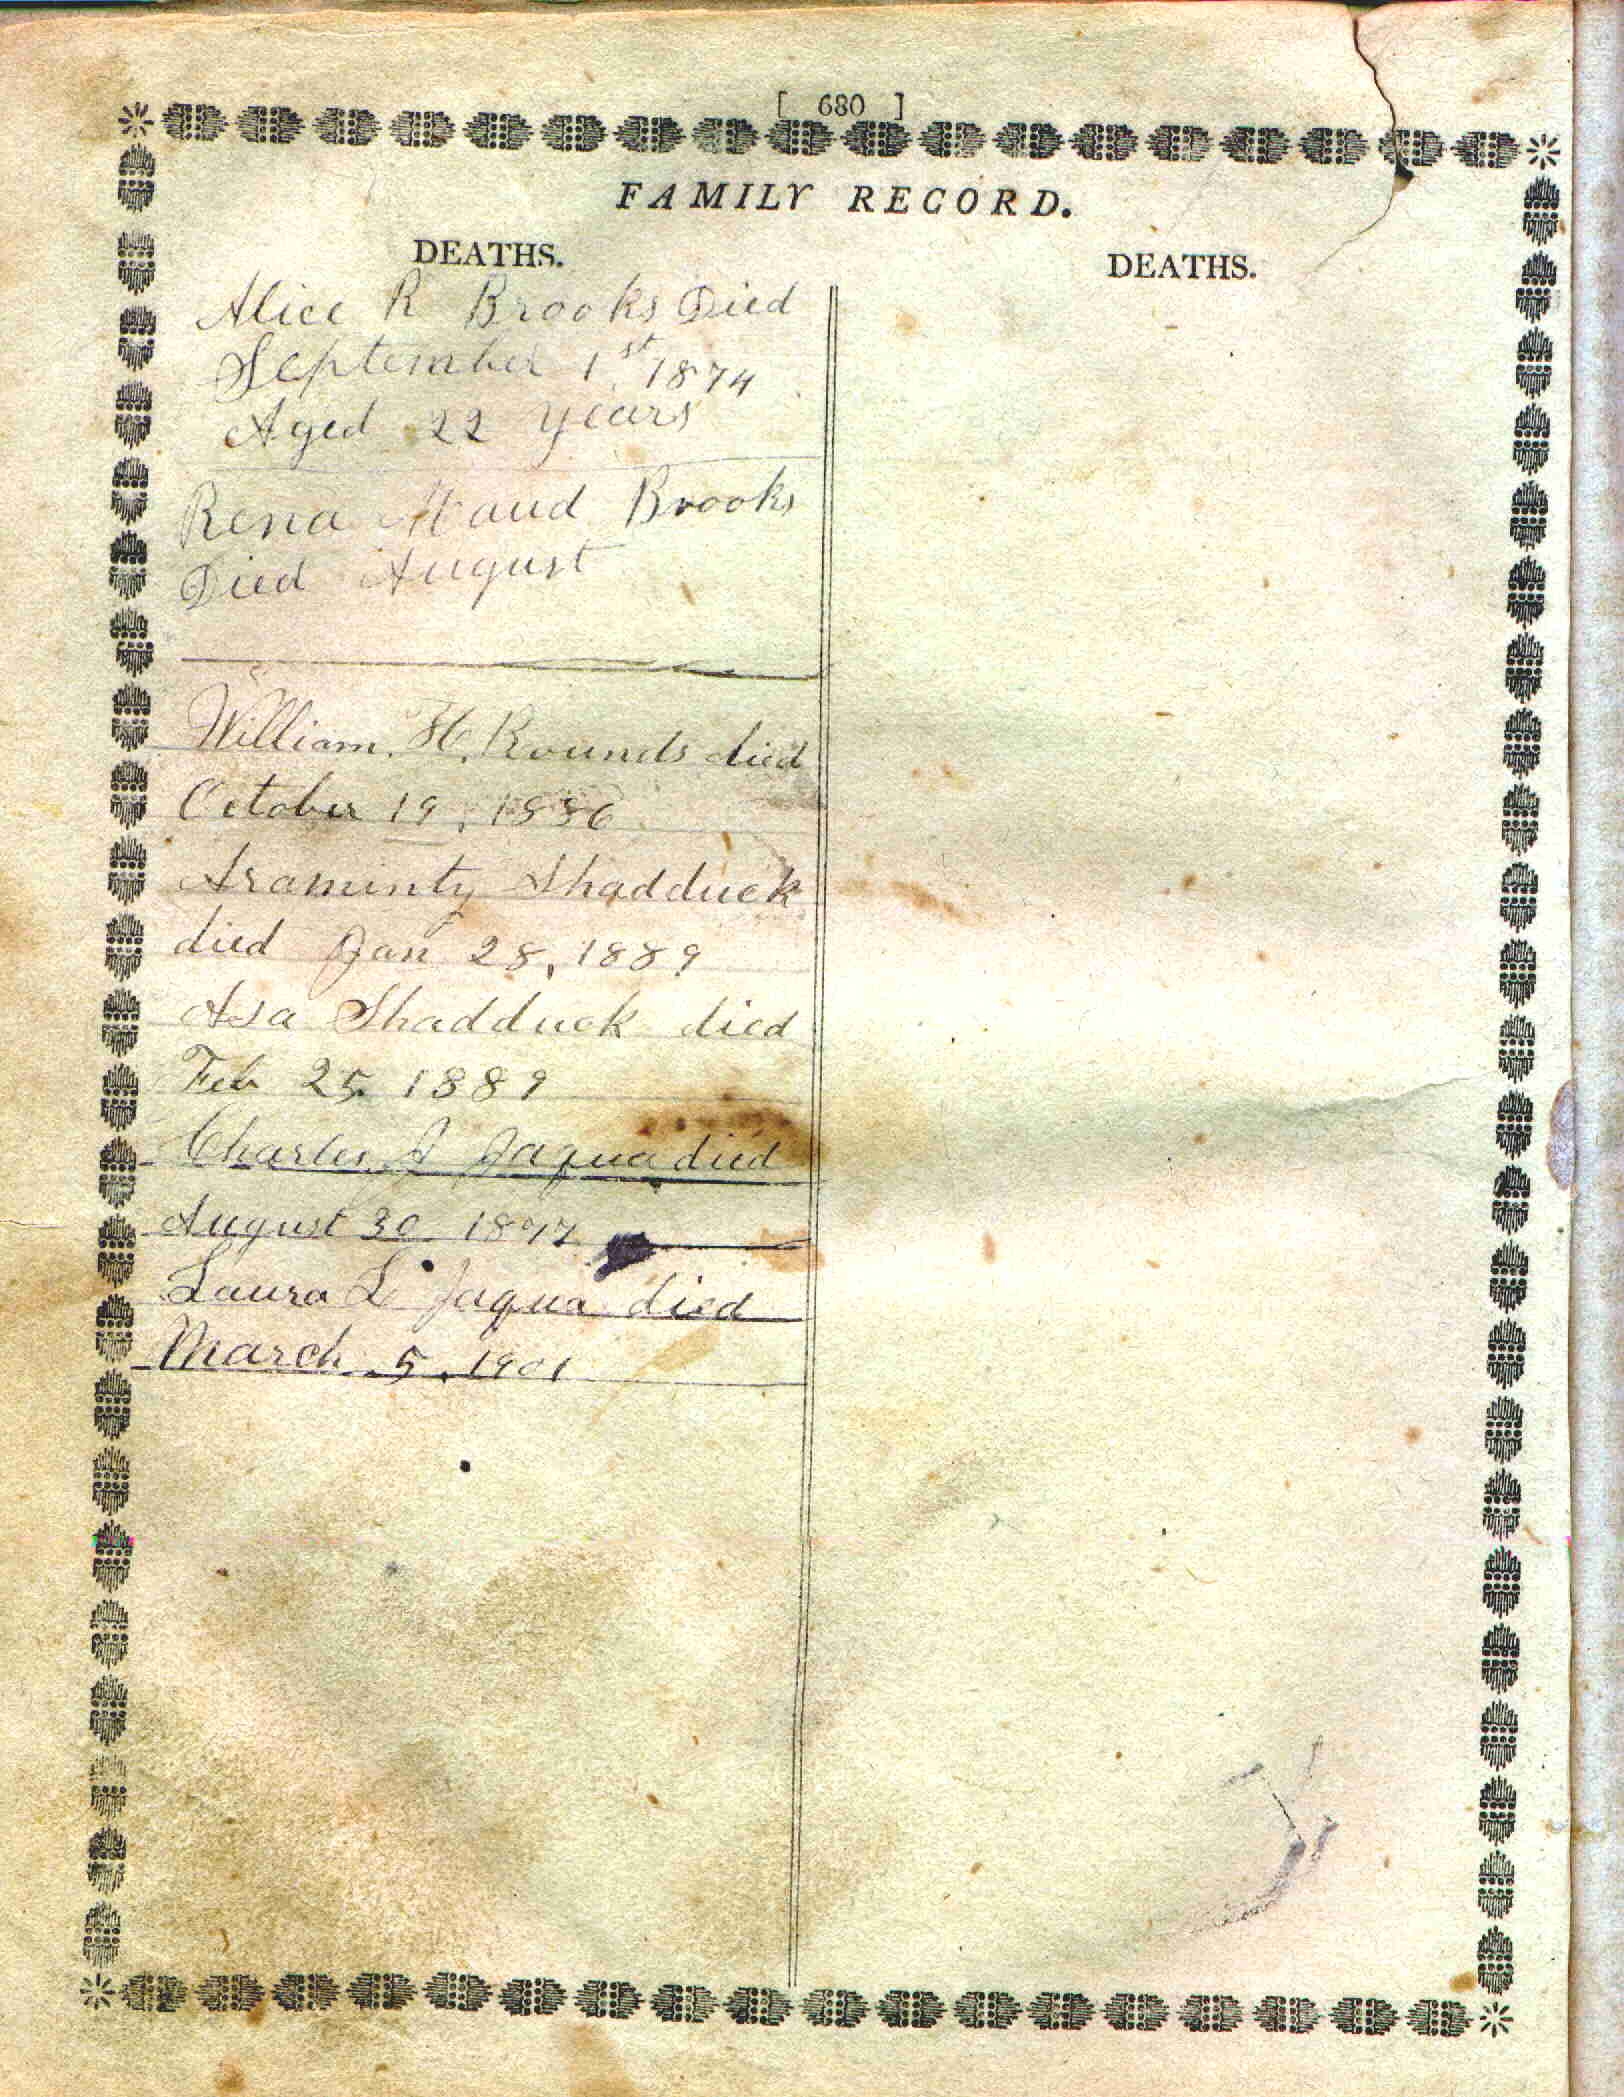 [ 680 ]
FAMILY RECORD.
DEATHS.
Alice R Brooks Died
September 1st 1874
Aged 22 years
Rena Maud Brooks
Died August
William. H. Rounds died
October 19, 1886
Araminty Shadduck
died Jan 28, 1889
Asa Shadduck died
Feb 25. 1889
Charles J Jaqua died
August 30 1897
Laura L Jaqua died
March 5, 1901
DEATHS.